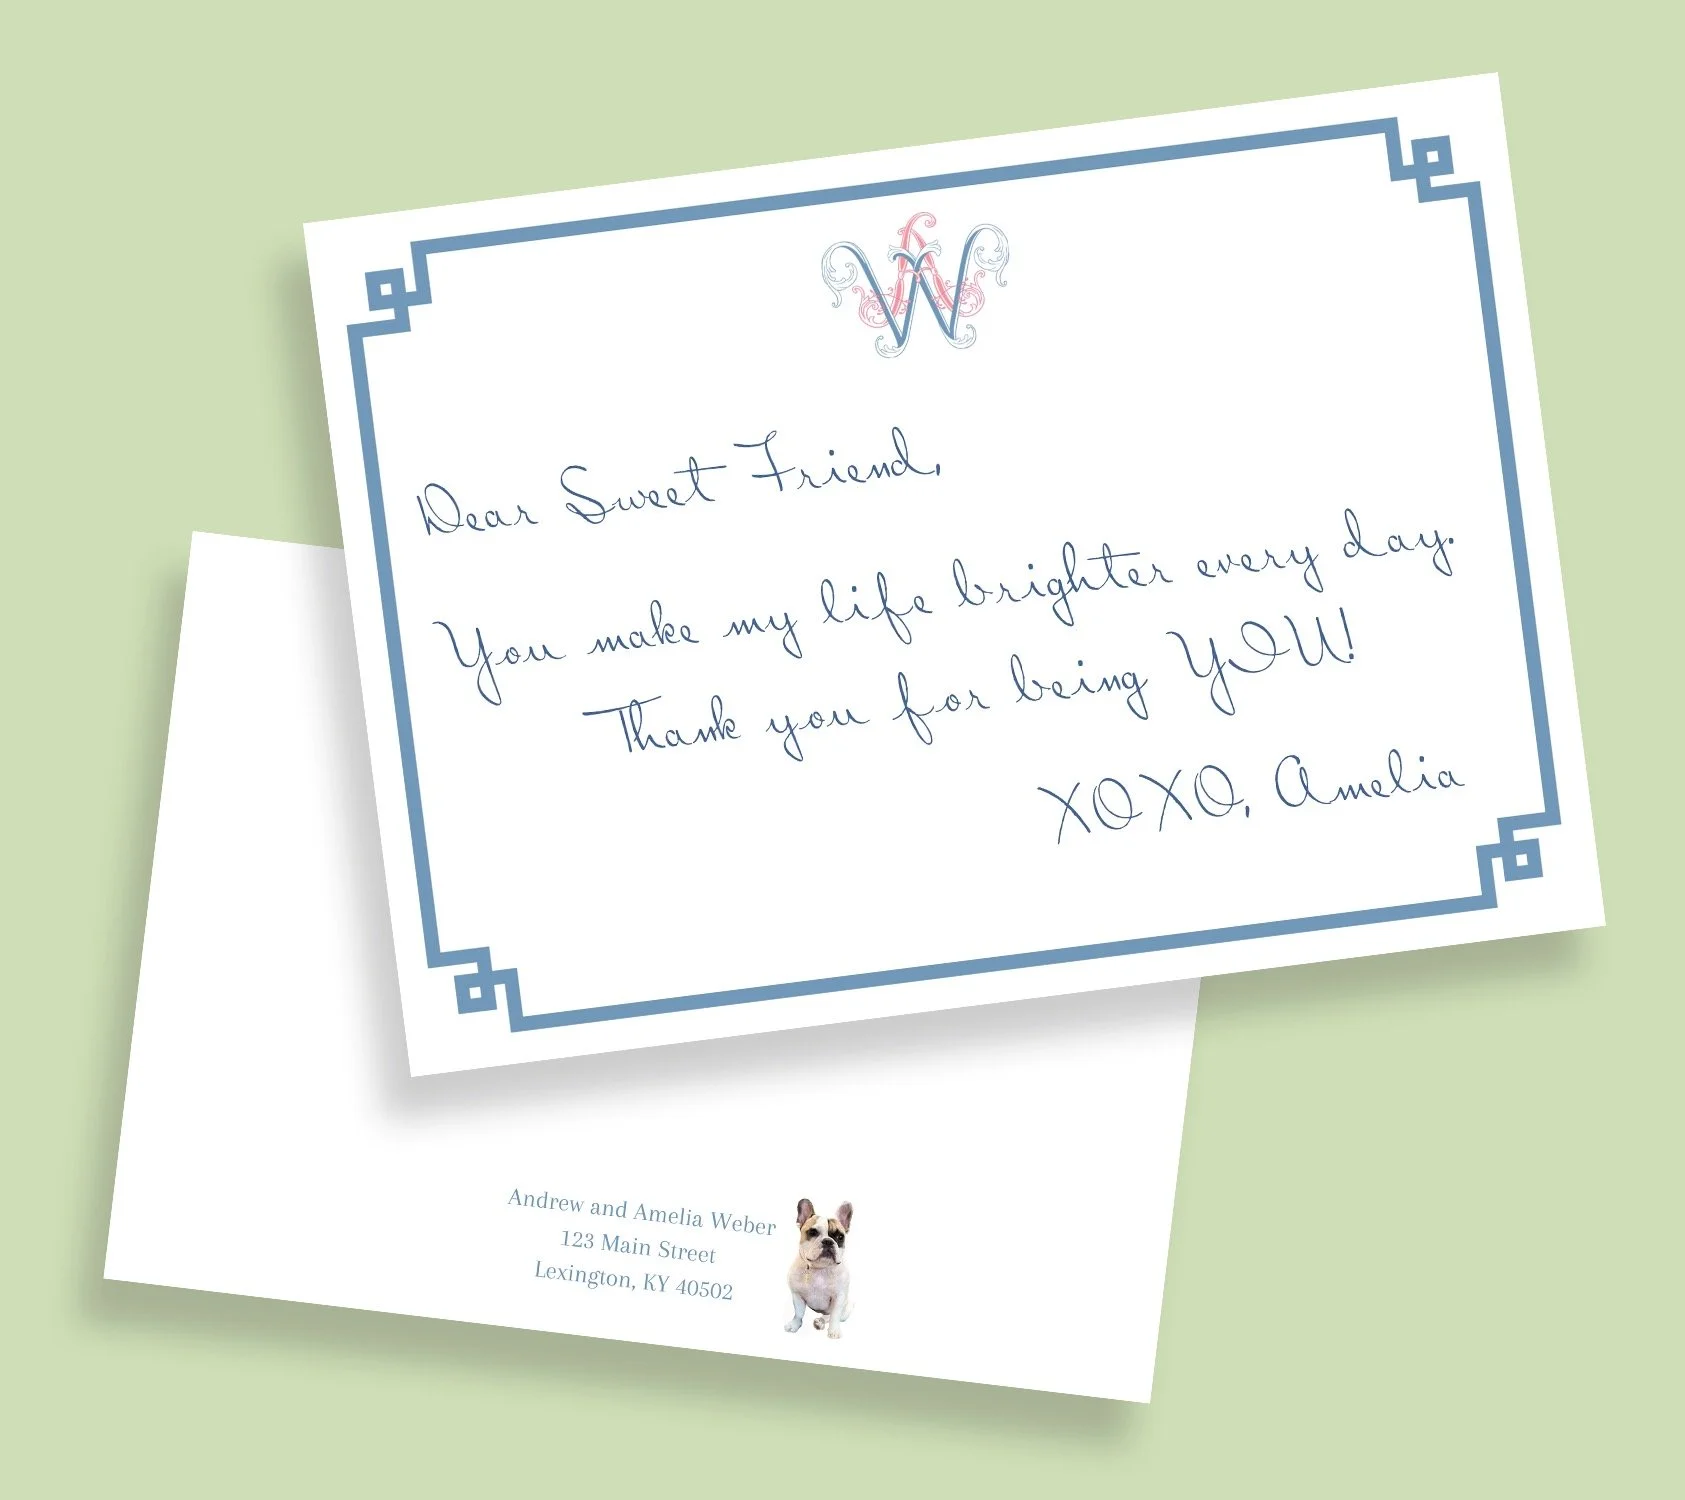 W
Dear Sweet Friend,
You make my life brighter every day.
Thank you for being YOU!
XOXO, Amelia
Andrew and Amelia Weber
123 Main Street
Lexington, KY 40502